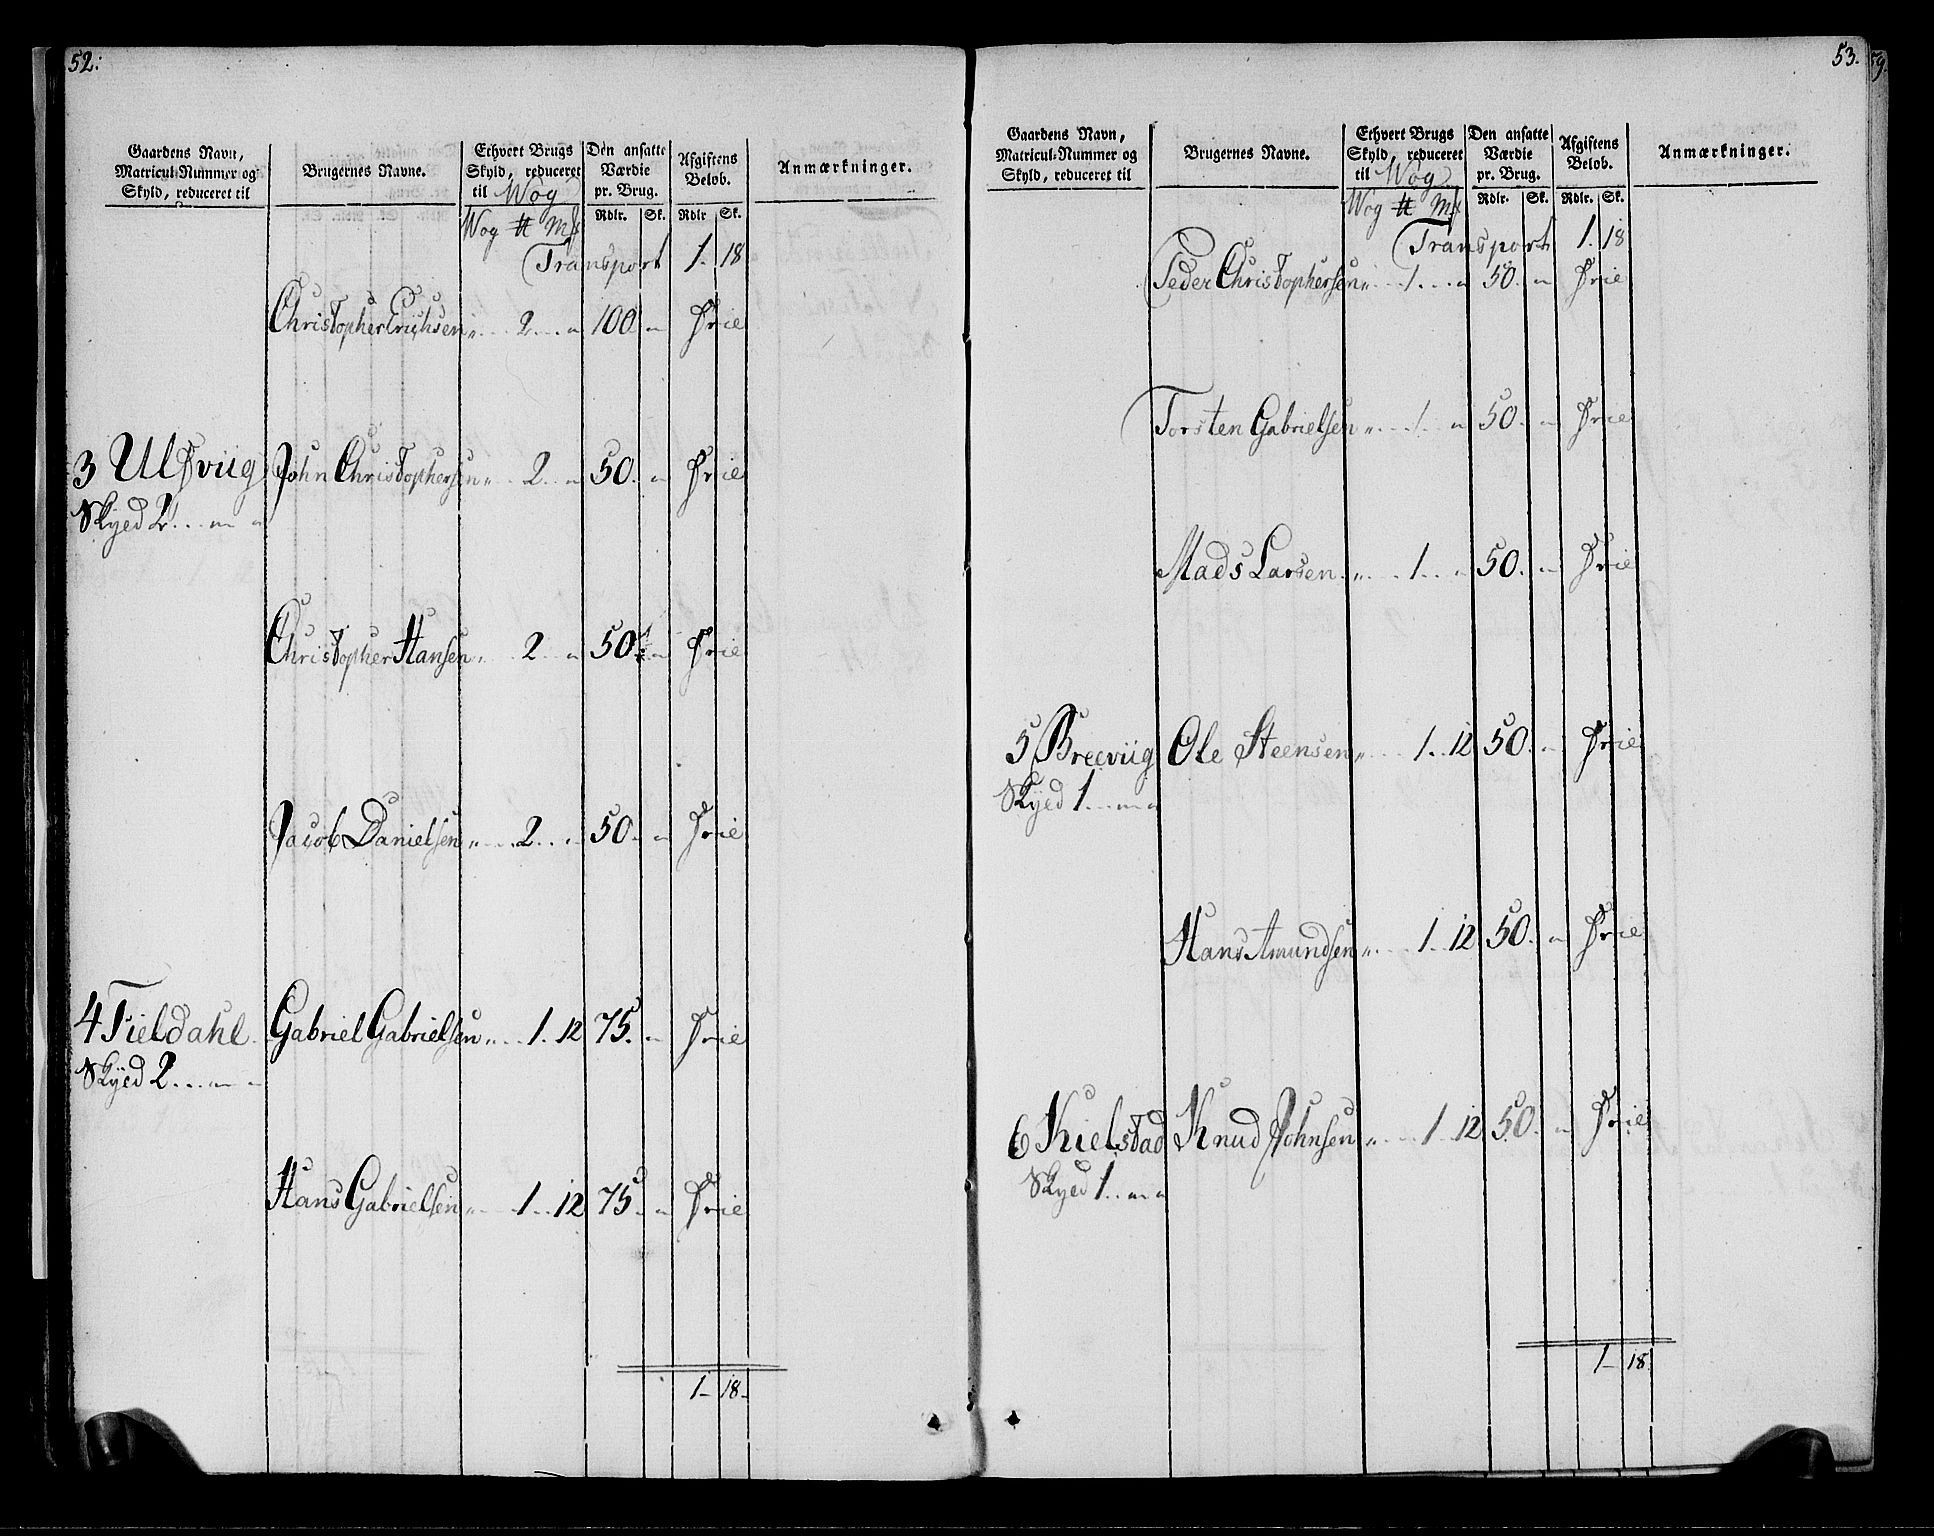 52:
Gaardens Navn,
Matricul-Nummer og
Skyld, reduceret til
Brugernes Navne.
Ethvert Brugs
Skyld, reduceret
til Wog
Den ansatte
Værdie
pr. Brug.
Afgiftens
Beløb.
Anmærkninger.
Wog ℔ Mk
Rdlr. Sk. Rdlr Sk.
Transport 1. 18
Christopher Erichsen „ 2 „ 100 „ Frie
3 Ulfsviig John Christophersen „ 2 „ 50. „ Frie
Skyed 2 „ „
Christopher Hansen „ 2 „ 50 „ Frie
Jacob Danielsen „ 2 „ 50 „ Frie
4 Fieldahl Gabriel Gabrielsen „ 1. 12 75. „ Frie
Skyed 2 „ „
Hans Gabrielsen „ 1. 12 75. „ Frie
1 18
53.
59.
Gaardens Navn,
Matricul-Nummer og
Skyld, reduceret til
Brugernes Navne.
Ethvert Brugs
Skyld, reduceret
til Wog
Den ansatte
Værdie
pr. Brug.
Afgiftens
Beløb.
Anmærkninger.
Wog ℔ Mk
Rdlr. Sk. Rdlr. Sk.
Transport 1. 18
Peder Christophersen „ 1 „ 50. „ Frie
Torsten Gabrielsen „ 1 „ 50. „ Frie
Mads Larsen „ 1 „ 50. „ Frie
5 Breeviig Ole Steensen „ 1. 12 50. „ Frie
Skyed 1 „ „
Hans Amundsen „ 1. 12 50. „ Frie
6 Kielstad Knud Johnsen „ 1 12 50. „ Frie
Skyed 1 „ „
1 18